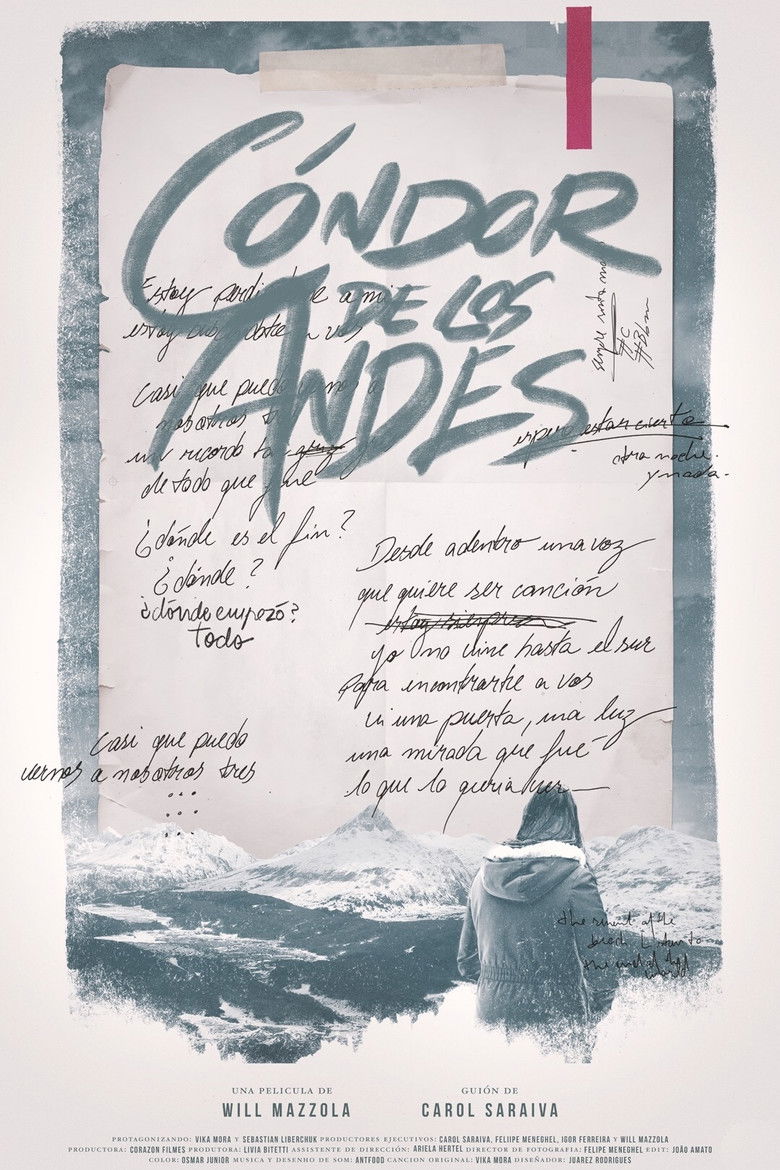 CÓNDOR
DE LOS
ANDES
Estoy a mi
estoy a vos
Casi que puedo a
nosotros
un recordo
de todo que
¿dónde es el fin?
¿dónde?
¿dónde empezó?
todo
Casi que puedo
vernos a nosotros tres
...
...
espero estar cierto
otra noche.
y nada.
Desde adentro una voz
que quiere ser canción
yo no vine hasta el sur
Para encontrarte a vos
vi una puerta, una luz
una mirada que fué
lo que la queria ver
the end of the
world
UNA PELICULA DE
WILL MAZZOLA
GUIÓN DE
CAROL SARAIVA
PROTAGONIZANDO: VIKA MORA Y SEBASTIAN LIBERCHUK PRODUCTORES EJECUTIVOS: CAROL SARAIVA, FELIIPE MENEGHEL, IGOR FERREIRA Y WILL MAZZOLA
PRODUCTORA: CORAZON FILMES PRODUTORA: LIVIA BITETTI ASSISTENTE DE DIRECCIÓN: ARIELA HERTEL DIRECTOR DE FOTOGRAFIA: FELIPE MENEGHEL EDIT: JOÃO AMATO
COLOR: OSMAR JUNIOR MUSICA Y DESENHO DE SOM: ANTFOOD CANCION ORIGINAL: VIKA MORA DISEÑADOR: JUAREZ RODRIGUES